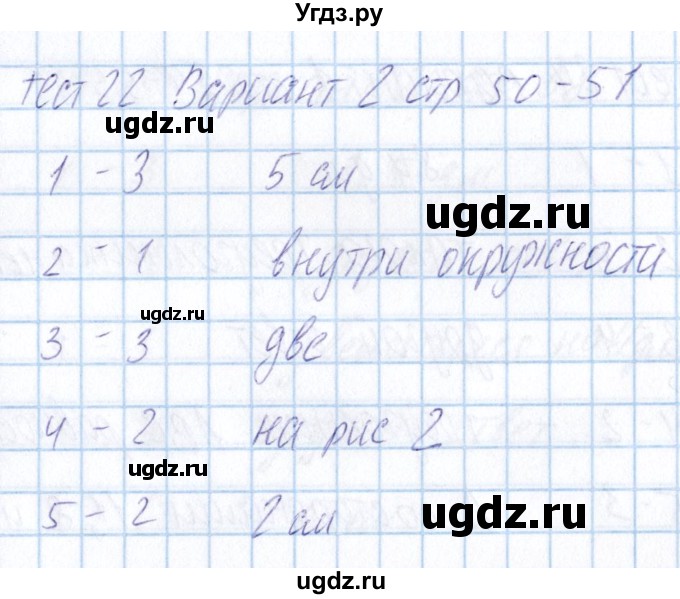 Угдз.ру
тест 22 Вариант 2 стр 50-51
ugdz.ru
1 - 3 5 см
ugdz.ru
2 - 1 внутри окружности
ugdz.ru
3 - 3 две
4 - 2 на рис 2
ugdz.ru
5 - 2 2 см
ugdz.ru
ugdz.ru